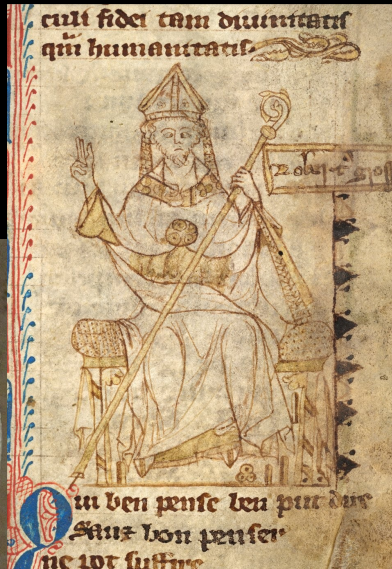 culi fidei tam diuinitatis
qm̄ humanitatis
Qui ben pense ben put dire
Sanz bon penser
ne pot suffire